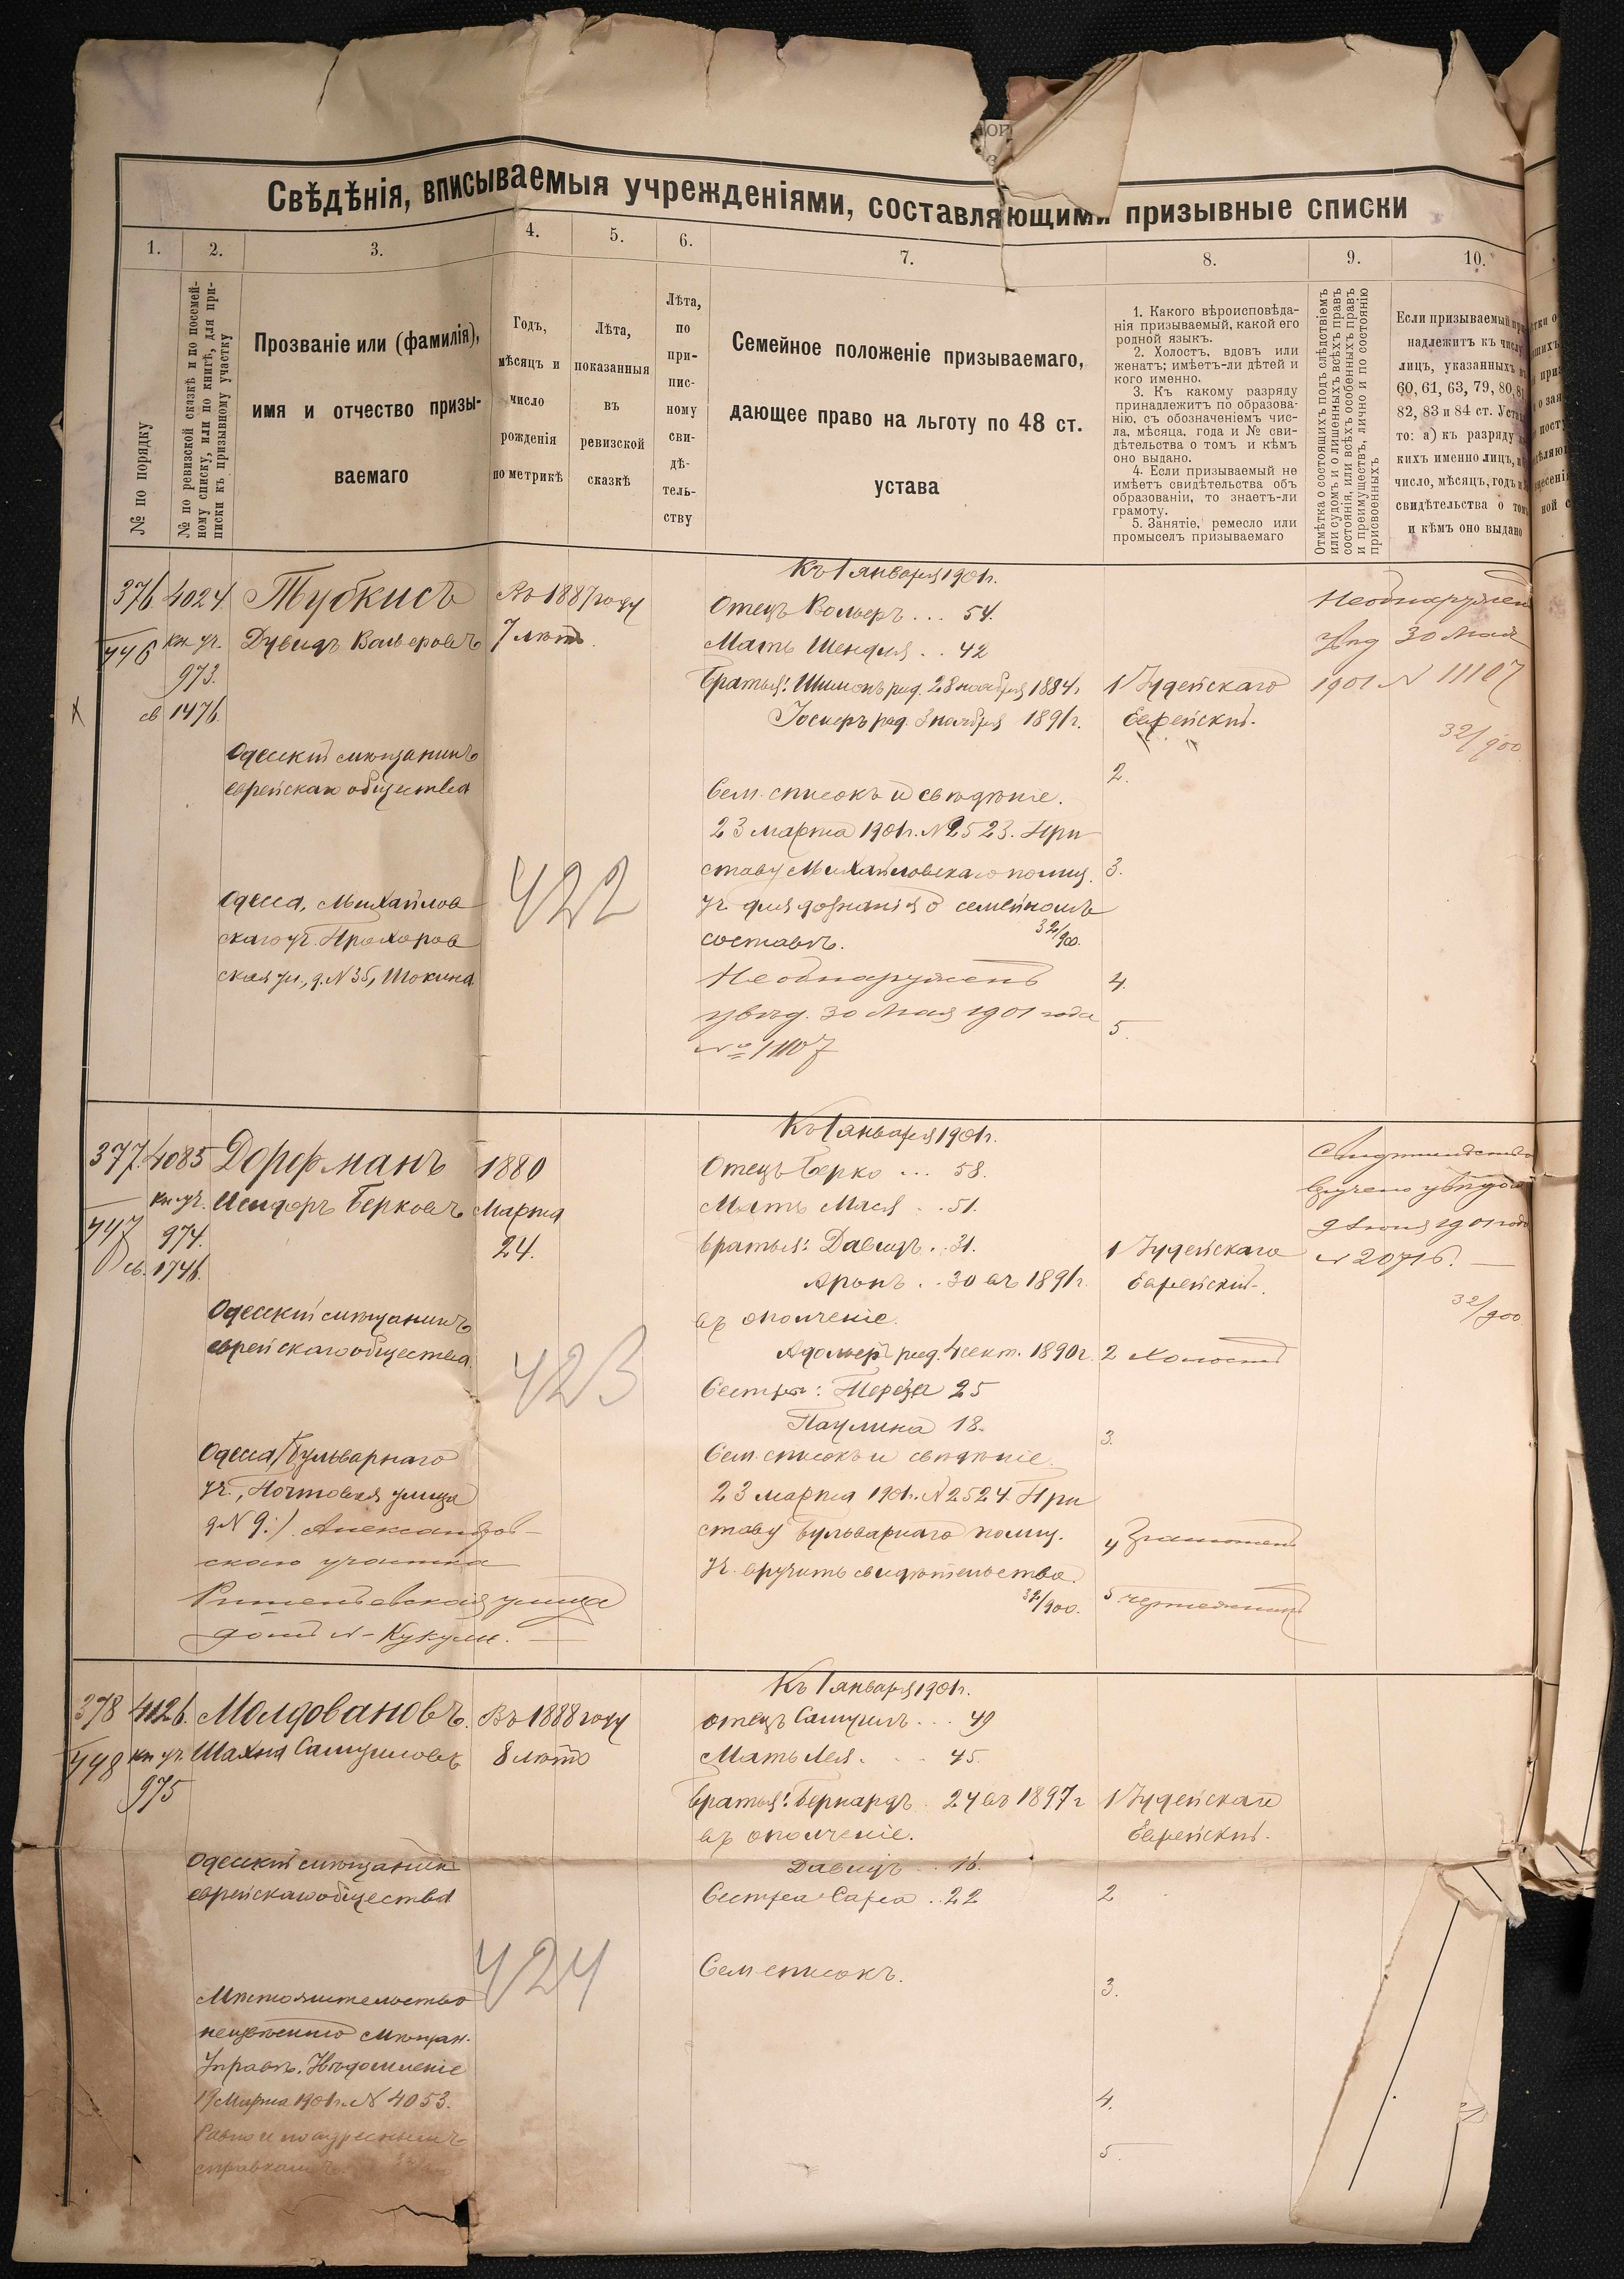 Свѣдѣнія, вписываемыя учрежденіями, составляющими призывные списки
1.
2.
3.
4.
5.
6.
7.
8.
9.
10.
№ по порядку
№ по ревизской сказкѣ и по посемей-
ному списку, или по книгѣ, для при-
писки къ призывному участку
Прозваніе или (фамилія),
имя и отчество призы-
ваемаго
Годъ,
мѣсяцъ и
число
рожденія
по метрикѣ
Лѣта,
показанныя
въ
ревизской
сказкѣ
Лѣта,
по
при-
пис-
ному
сви-
дѣ-
тель-
ству
Семейное положеніе призываемаго,
дающее право на льготу по 48 ст.
устава
1. Какого вѣроисповѣда-
нія призываемый, какой его
родной языкъ.
2. Холостъ, вдовъ или
женатъ; имѣетъ-ли дѣтей и
кого именно.
3. Къ какому разряду
принадлежитъ по образова-
нію, съ обозначеніемъ чис-
ла, мѣсяца, года и № сви-
дѣтельства о томъ и кѣмъ
оно выдано.
4. Если призываемый не
имѣетъ свидѣтельства объ
образованіи, то знаетъ-ли
грамоту.
5. Занятіе, ремесло или
промыселъ призываемаго
Отмѣтка о состоящихъ подъ слѣдствіемъ
или судомъ и о лишенныхъ всѣхъ правъ
состоянія, или всѣхъ особенныхъ правъ
и преимуществъ, лично и по состоянію
присвоенныхъ
Если призываемый
надлежитъ къ числу
лицъ, указанныхъ
60, 61, 63, 79, 80, 81
82, 83 и 84 ст. Уст
то: а) къ разряду
кихъ именно лицъ,
число, мѣсяцъ, годъ
свидѣтельства о томъ
и кѣмъ оно выдано
376
446
4024
кн уч.
973.
св 1476
Тубкисъ
Дувидъ Вольфовъ
Въ 1887 году
7 лѣтъ
Одесскій мѣщанинъ
еврейскаго общества
Одесса, Михайлов
скаго уч. Прохоров
ская ул., д. N 35, Шокина
422
Къ 1 января 1901 г.
Отецъ Вольфъ ... 54.
Мать Шендля .. 42
Братья: Шимонъ род. 28 ноября 1884 г.
Іосифъ род. 3 ноября 1891 г.
Сем. списокъ и свѣдѣніе.
23 марта 1901 г. N 2523. При-
ставу Михайловскаго полиц.
уч. для дознанія о семейномъ
составѣ. 32/900.
Необнаруженъ
увѣд. 30 мая 1901 года
№ 11107
1 Іудейскаго
Еврейскій.
2.
3.
4.
5
Необнаружен
увѣд 30 мая
1901 N 11107
32/900
377.
447
4085
кн уч.
974.
св. 1746.
Дорфманъ
Исидоръ Берковъ
1880
Марта
24.
Одесскій мѣщанинъ
еврейскаго общества
Одесса / Бульварнаго
уч., Почтовая улица
д N 9:/. Александров-
скаго участка
Ришельевская улица
домъ N- Кукули.
423
Къ 1 января 1901 г.
Отецъ Берко ... 58.
Мать Мася .. 51.
братья: Давидъ .. 31.
Аронъ .. 30 въ 1891 г.
въ ополченіе.
Адольфъ род. 4 сент. 1890 г.
Сестры: Тереза 25
Паулина 18.
Сем. списокъ и свѣдѣніе.
23 марта 1901 г. N 2524. При
ставу бульварнаго полиц.
уч. вручить свидѣтельство.
32/900.
1 Іудейскаго
Еврейскій.
2 Холостъ
3.
4 Грамотенъ
5 чертежникъ
Свидѣтельство
вручено увѣдом
9 Іюня 1901 года
N 20716.
32/900
378
448
4126.
кн уч.
975
Молдовановъ.
Шахна Самуиловъ
Въ 1888 году
8 лѣтъ
Одесскій мѣщанин
еврейскаго общества
Мѣстожительство
неизвѣстно мѣщан.
Управѣ. Увѣдомленіе
19 Марта 1901 г. N 4053.
Равно и по адреснымъ
справкамъ
424
Къ 1 января 1901 г.
отецъ Самуилъ ... 49
Мать Лея ... 45
братья: Бернардъ . 24 въ 1897 г
въ ополченіе.
Давидъ .. 16.
Сестра Сара .. 22
Сем списокъ.
1 Іудейскаго
Еврейскій.
2
3.
4.
5